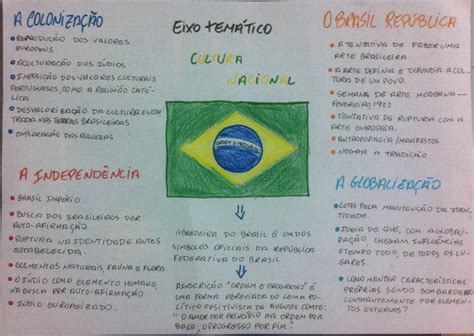 A COLONIZAÇÃO
REPRODUÇÃO DOS VALORES
EUROPEUS
ACULTURAÇÃO DOS ÍNDIOS
IMPOSIÇÃO DOS VALORES CULTURAIS
PORTUGUESES, COMO A RELIGIÃO CATÓ-
LICA
DESVALORIZAÇÃO DA CULTURA ENCON
TRADA NAS TERRAS BRASILEIRAS
EXPLORAÇÃO DAS RIQUEZAS
A INDEPENDÊNCIA
BRASIL IMPÉRIO
BUSCA DOS BRASILEIROS POR
AUTO-AFIRMAÇÃO
RUPTURA NA IDENTIDADE ANTES
ESTABELECIDA.
ELEMENTOS NATURAIS FAUNA E FLORA
O ÍNDIO COMO ELEMENTO HUMANO,
NA BUSCA POR AUTO-AFIRMAÇÃO
ÍNDIO EUROPEIZADO.
EIXO TEMÁTICO
CULTURA
NACIONAL
ORDEM E PROGRESSO
A BANDEIRA DO BRASIL É UM DOS
SÍMBOLOS OFICIAIS DA REPÚBLICA
FEDERATIVA DO BRASIL
A INSCRIÇÃO "ORDEM E PROGRESSO" É
UMA FORMA ABREVIADA DO LEMA PO
LÍTICO POSITIVISTA DE AUGUSTE COMTE:
"O AMOR POR PRINCÍPIO E A ORDEM POR
BASE, O PROGRESSO POR FIM."
O BRASIL REPÚBLICA
A TENTATIVA DE FAZER UMA
ARTE BRASILEIRA
A ARTE DEFINIA E DIFUNDIA A CUL
TURA DE UM POVO.
SEMANA DE ARTE MODERNA -
FEVEREIRO 1922
TENTATIVA DE RUPTURA COM A
ARTE EUROPEIA.
ANTROPOFAGIA/MANIFESTOS
NEGAR A TRADIÇÃO
A GLOBALIZAÇÃO
LUTA PELA MANUTENÇÃO DA IDEN-
TIDADE.
IDEIA DE QUE, COM A GLOBALI-
ZAÇÃO, CHEGAM INFLUÊNCIAS
O TEMPO TODO, DE TODOS OS LU-
GARES.
COMO MANTER CARACTERÍSTICAS
PRÓPRIAS SENDO BOMBARDEADO
CONSTANTEMENTE POR ELEMENTOS
EXTERNOS?